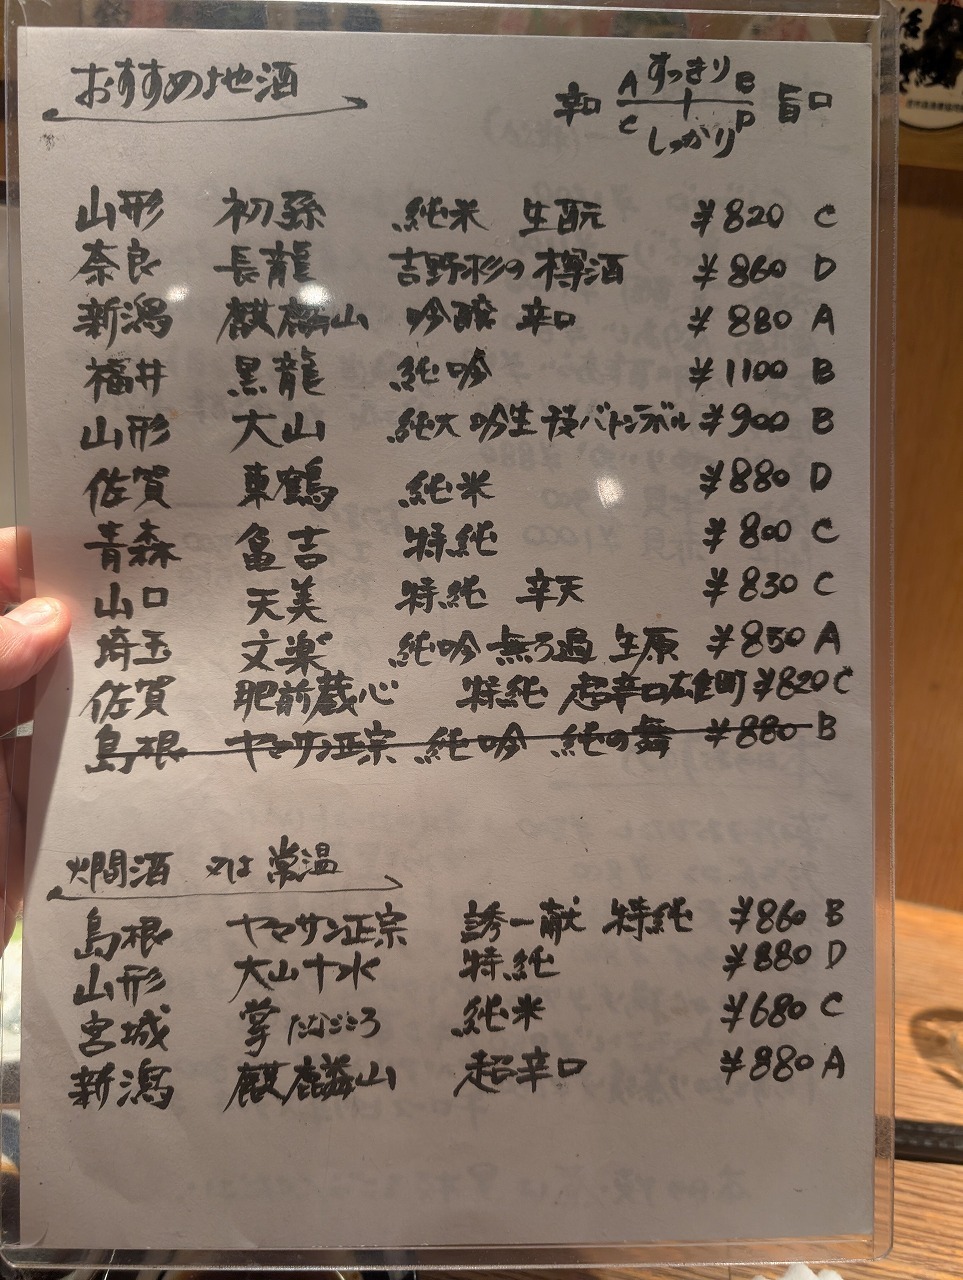 おすすめ地酒
すっきり
A B
辛口 旨口
C D
しっかり
山形 初孫 純米 生酛 ¥820 C
奈良 長龍 吉野杉の樽酒 ¥860 D
新潟 麒麟山 吟醸 辛口 ¥880 A
福井 黒龍 純吟 ¥1100 B
山形 大山 純大吟生 槽前バトンラボル ¥900 B
佐賀 東鶴 純米 ¥880 D
青森 亀吉 特純 ¥800 C
山口 天美 特純 辛天 ¥830 C
埼玉 文楽 純吟 無ろ過 生原 ¥850 A
佐賀 肥前蔵心 特純 超辛口雄町 ¥820 C
島根 ヤマサン正宗 純吟 純の舞 ¥880 B
燗酒 又は 常温
島根 ヤマサン正宗 誘一献 特純 ¥860 B
山形 大山十水 特純 ¥880 D
宮城 掌 たなごころ 純米 ¥680 C
新潟 麒麟山 超辛口 ¥880 A